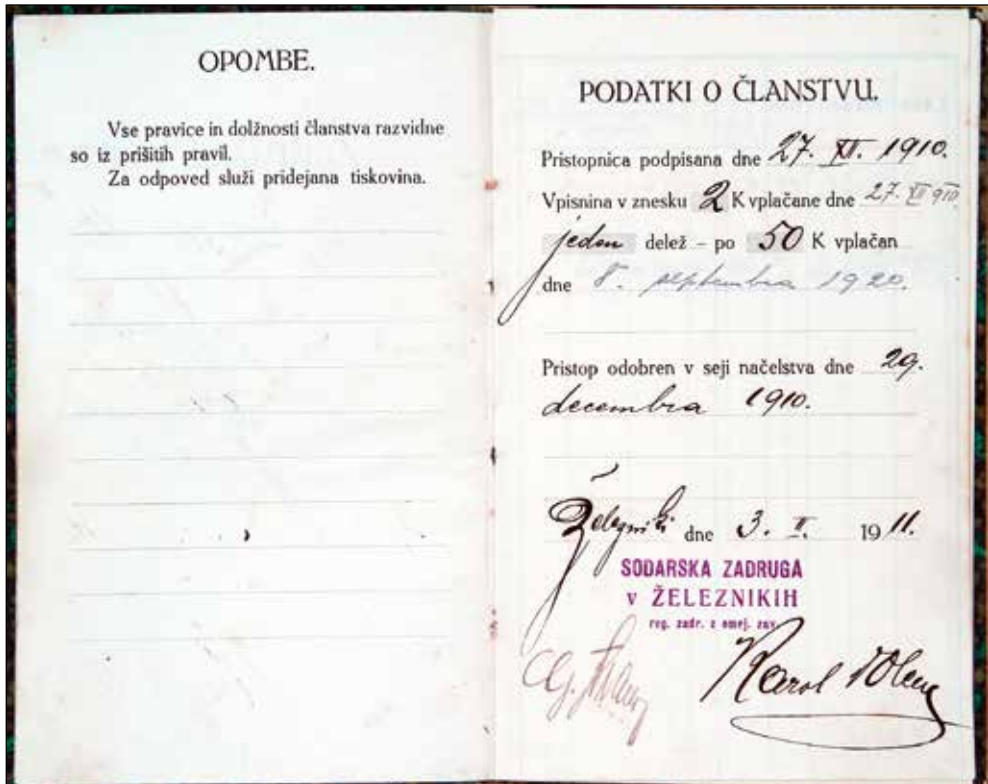 OPOMBE.
Vse pravice in dolžnosti članstva razvidne
so iz prišitih pravil.
Za odpoved služi pridejana tiskovina.
PODATKI O ČLANSTVU.
Pristopnica podpisana dne 27. XI. 1910.
Vpisnina v znesku 2 K vplačane dne 27. XII 910.
jeden delež – po 50 K vplačan
dne 8. septembra 1920.
Pristop odobren v seji načelstva dne 29.
decembra 1910.
Železniki dne 3. II. 1911.
SODARSKA ZADRUGA
v ŽELEZNIKIH
reg. zadr. z omej. zav.
Karol